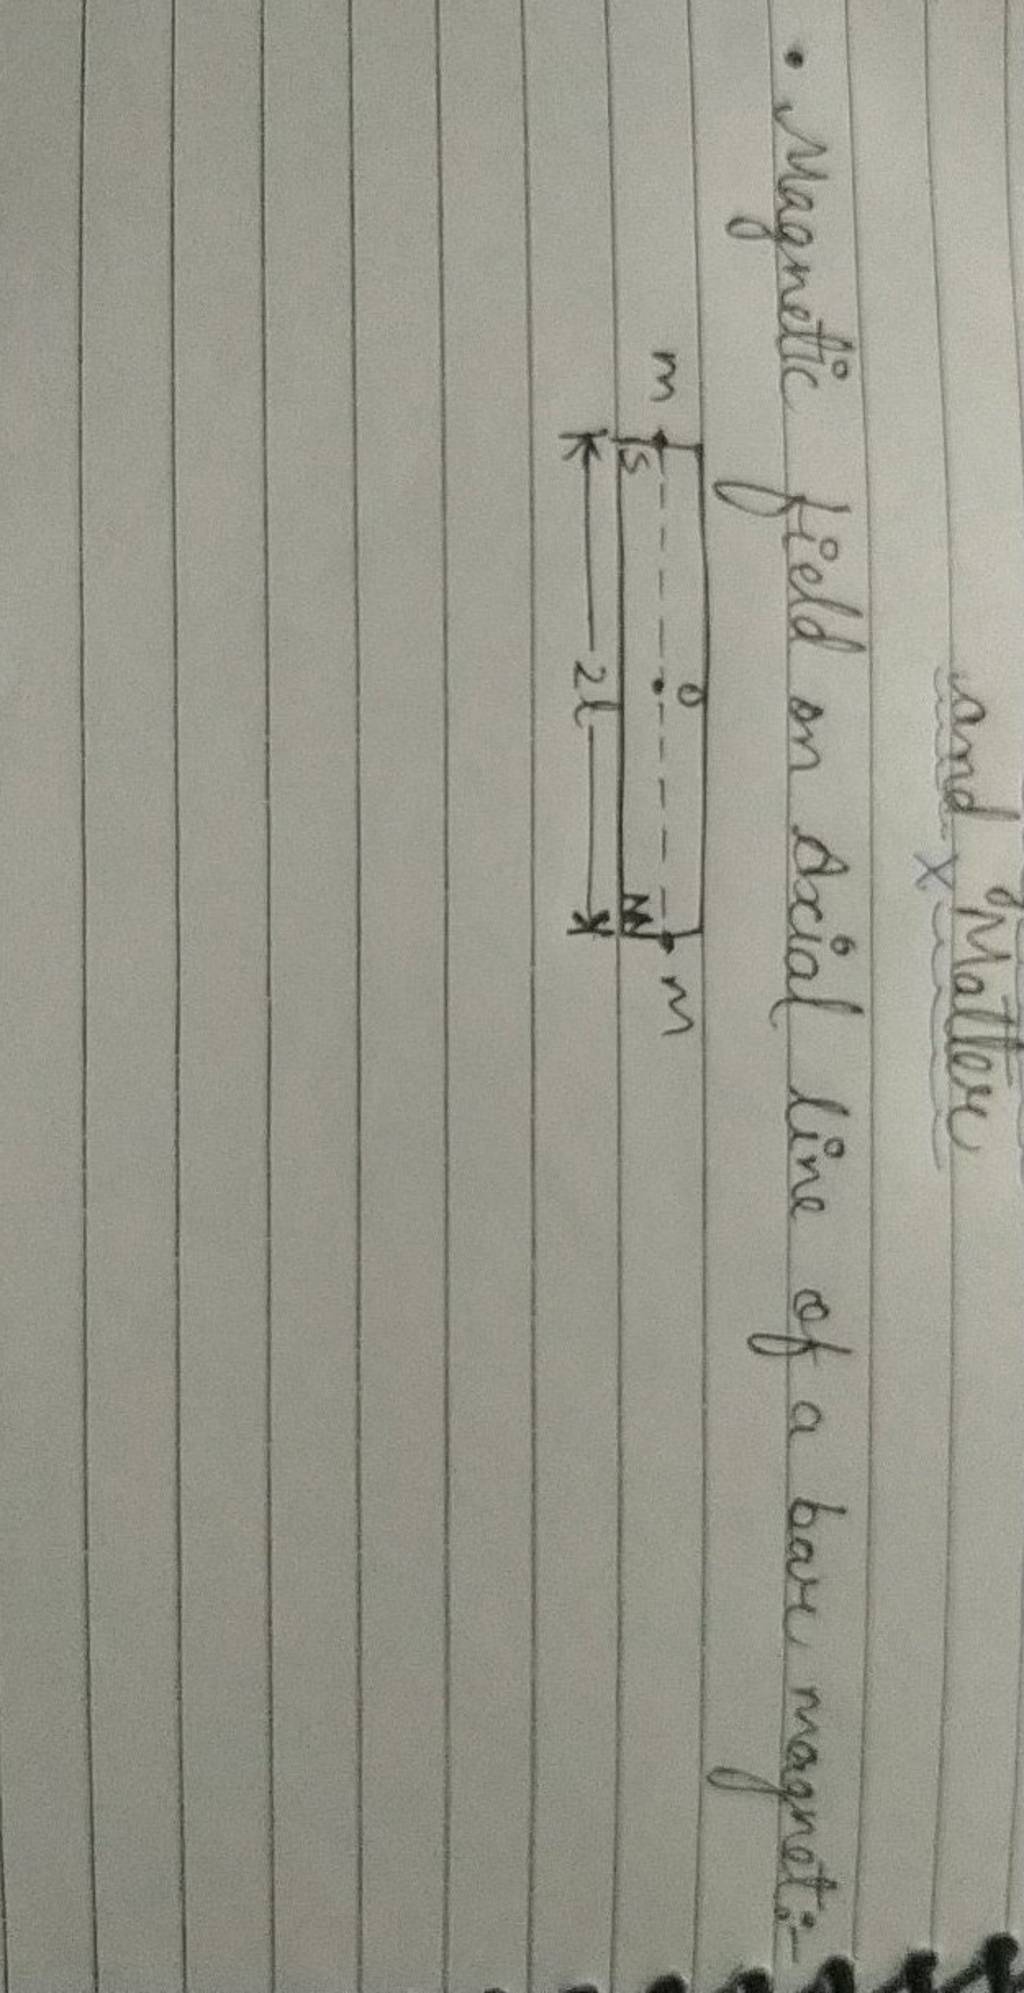 and Matter
• Magnetic field on Axial line of a bar magnet:-
O
m m
S N
2l